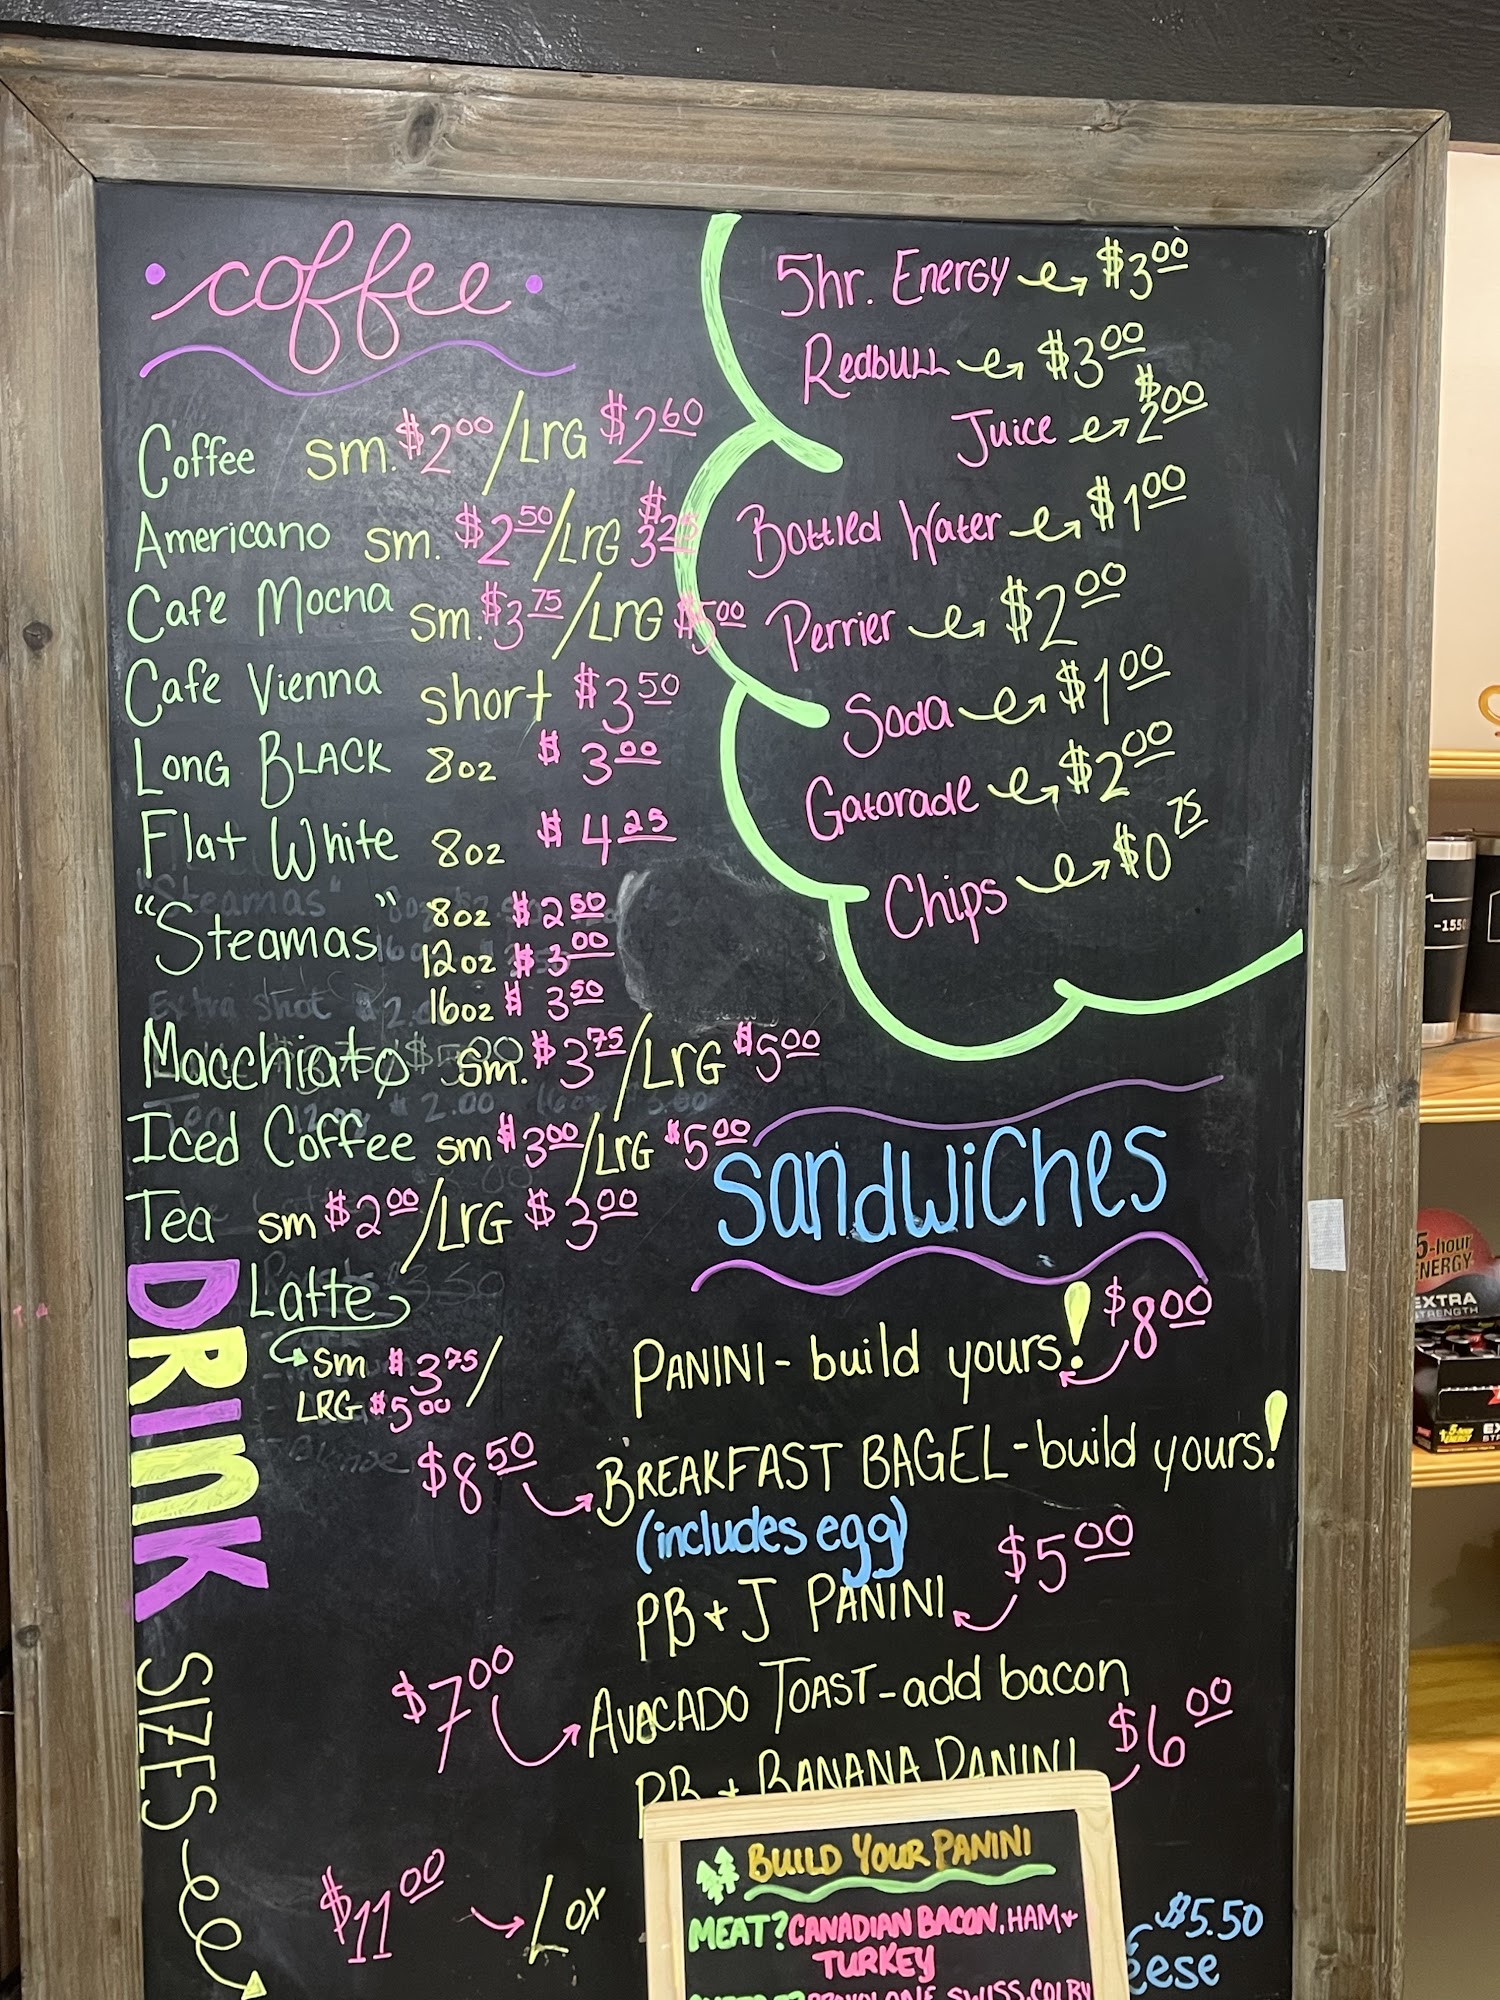 coffee
Coffee sm. $2.00/LrG $2.60
Americano sm. $2.50/LrG $3.25
Cafe Mocha sm. $3.75/LrG $5.00
Cafe Vienna short $3.50
Long BLACK 8oz $3.00
Flat White 8oz $4.25
"Steamas" 8oz $2.50
12oz $3.00
16oz $3.50
Macchiato sm. $3.75/LrG $5.00
Iced Coffee sm $3.00/LrG $5.00
Tea sm $2.00/LrG $3.00
Latte
sm $3.75/
LRG $5.00
DRINK
SIZES
5hr. Energy $3.00
Redbull $3.00
Juice $2.00
Bottled Water $1.00
Perrier $2.00
Soda $1.00
Gatorade $2.00
Chips $0.75
Sandwiches
PANINI - build yours! $8.00
$8.50 BREAKFAST BAGEL - build yours!
(includes egg)
PB + J PANINI $5.00
$7.00 AVOCADO TOAST - add bacon
PB + BANANA PANINI $6.00
$11.00 Lox
$5.50
eese
BUILD YOUR PANINI
MEAT? CANADIAN BACON, HAM +
TURKEY
PROVOLONE, SWISS, COLBY
5-hour
ENERGY
EXTRA
STRENGTH